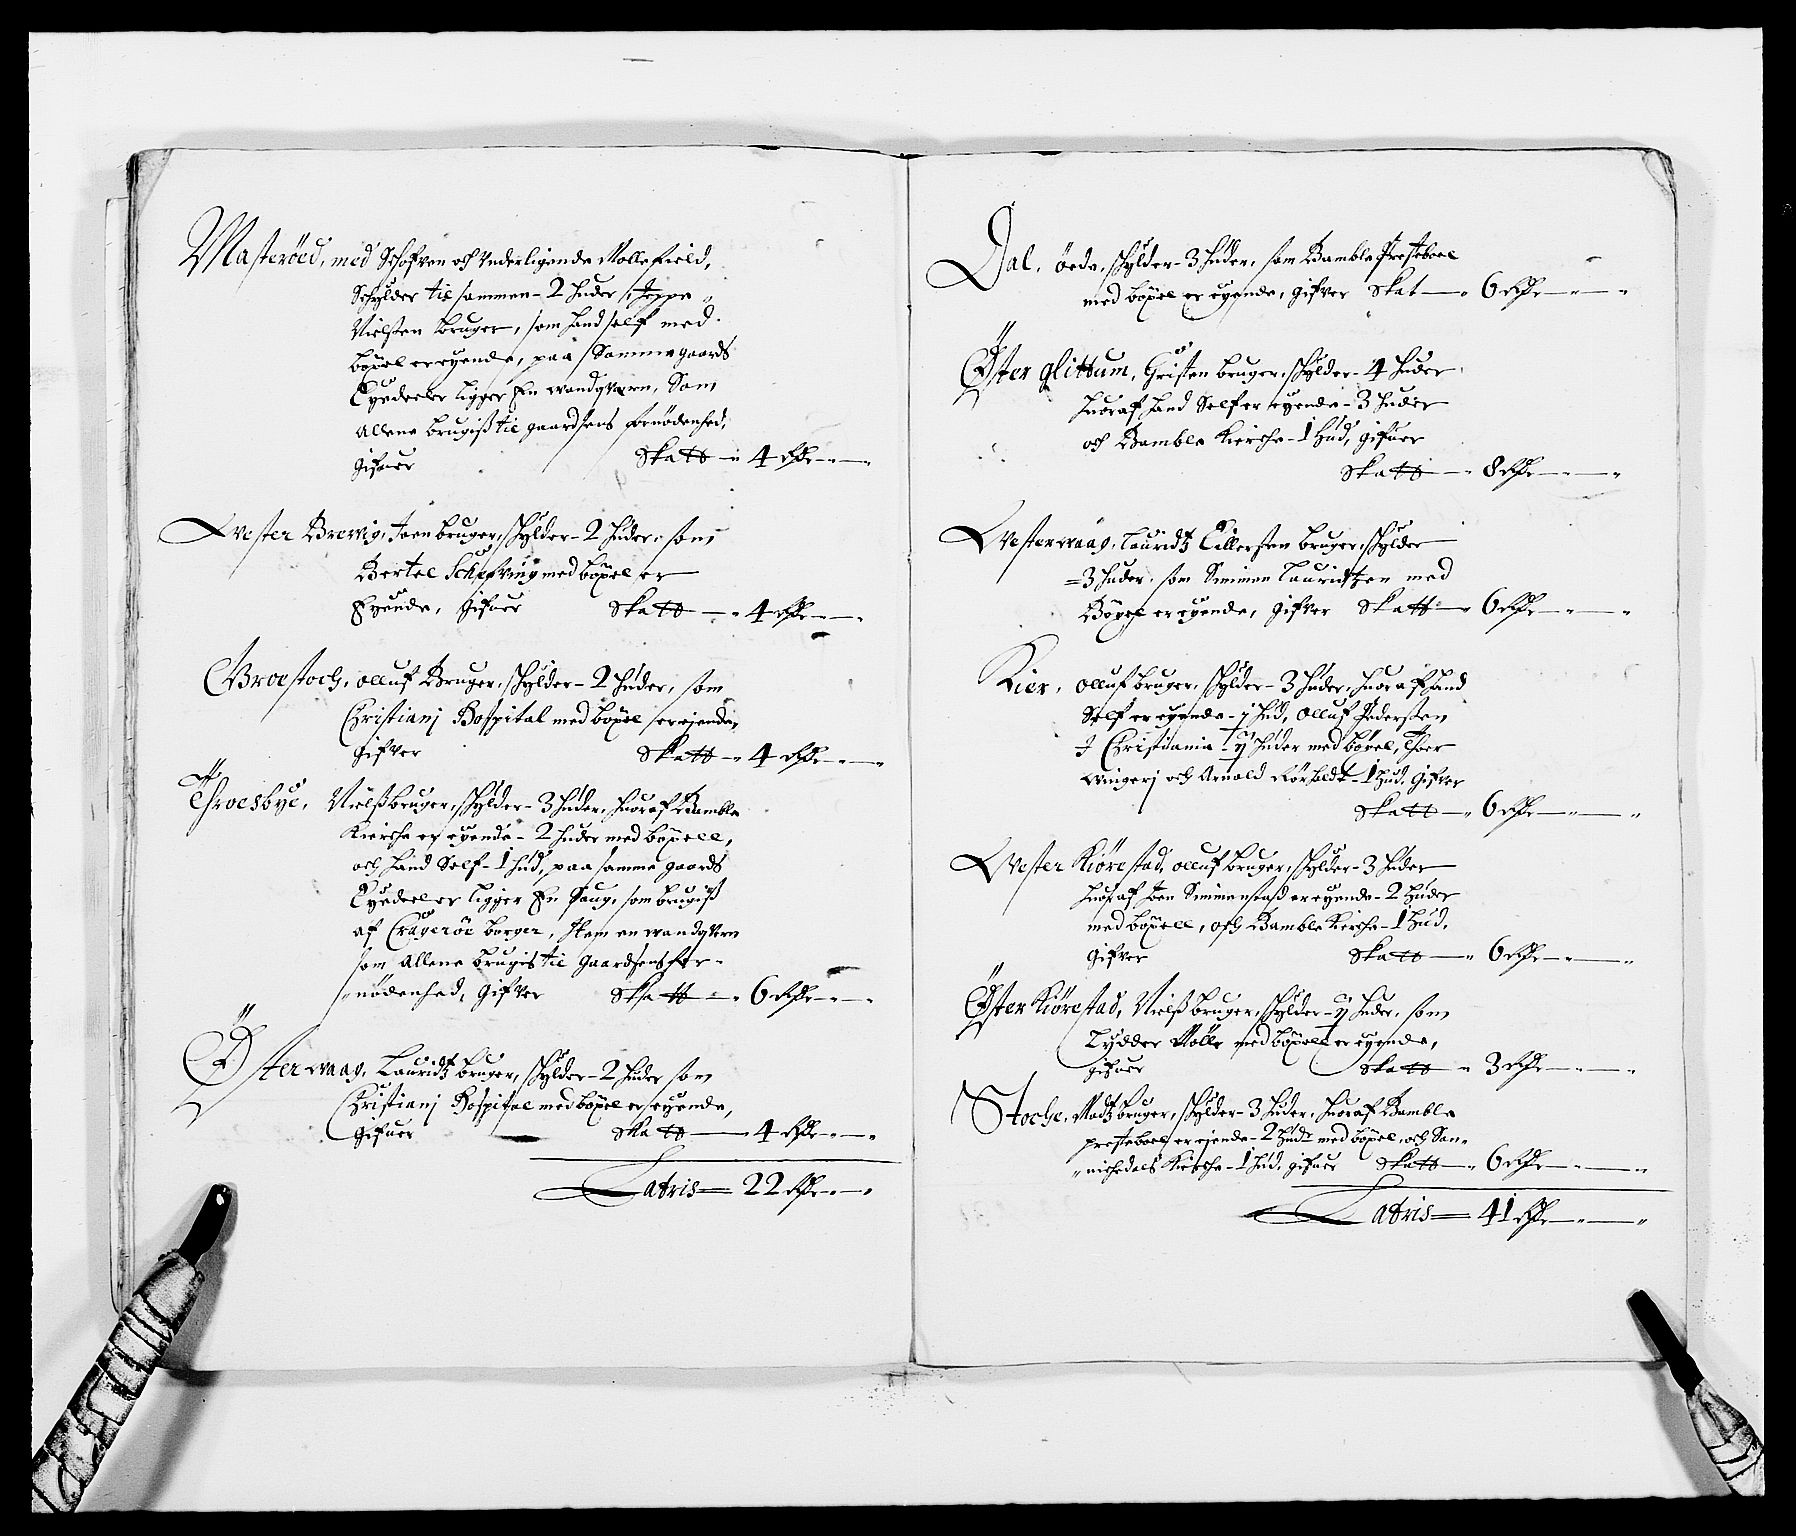 Masteröed, med Schofven och Underligende Mollefield,
Schylder tilsammen - 2 huder, Jeppe
Nielsen bruger, som hand self med
böxel er eyende, paa Samme gaards
Eyedeeler ligger En wandqvern, Som
Allene brugis til gaardsens fornödenhed,
Gifuer Skatt - 4 Rdr - -
Wester Brevig, Joen bruger, schylder - 2 huder, som
Bertel med böxel er
Eyende, Gifuer Skatt - 4 Rdr - -
Broestoch, olluf Bruger, schylder - 2 huder, som
Christianj Hospital med böxel er ejende,
Gifver Skatt - 4 Rdr - -
Throesbye, Nielss bruger, schylder - 3 huder, huoraf Bamble
Kierche er eyende - 2 huder med böxell,
och hand Self - 1 hud, paa samme gaards
Eyedeeler ligger En Saug, som brugiss
af Crageröe borger, Item en wandqvern
som Allene brugis til gaardsens for-
nödenhed, Gifver Skatt - 6 Rdr - -
Öster waag, Lauridtz bruger, schylder - 2 huder som
Christianj Hospital med böxel er eyende,
Gifuer Skatt - 4 Rdr - -
Latris - 22 Rdr - -
Dal, öede, schylder - 3 huder, som Bamble Presteboel
med böxel er eyende, gifver Skat - 6 Rdr - -
Öster glittum, Christen bruger, schylder - 4 huder
huoraf hand Self er eyende - 3 huder
och Bamble Kierche - 1 hud, gifuer
Skatt - 8 Rdr - -
Wester waag, Lauridtz Ellersen bruger, schylder
- 3 huder, som Simmen Lauridtzen med
Böxel er eyende, gifver Skatt - 6 Rdr - -
Kier, olluf bruger, schylder - 3 huder, huoraf hand
Self er eyende - ½ hud, olluf Pedersen
I Christiania - 1½ huder med böxel, Thoer
wingerj och Arnold Rörholdt - 1 hud, Gifver
Skatt - 6 Rdr - -
Wester Kiörestad, olluf bruger, schylder - 3 huder
huoraf Joen Simmensass er eyende - 2 huder
med böxell, och Bamble Kierche - 1 hud,
Gifver Skatt - 6 Rdr - -
Öster Kiörestad, Nielss bruger, schylder - 1½ huder, som
Lydder Mölle med böxell er eyende,
gifuer Skatt - 3 Rdr - -
Stoche, Madtz bruger, schylder - 3 huder, huoraf Bamble
presteboel er ejende - 2 hude med böxel, och San-
nichedals Kierche - 1 hud, gifuer Skatt - 6 Rdr - -
Latris - 41 Rdr - -